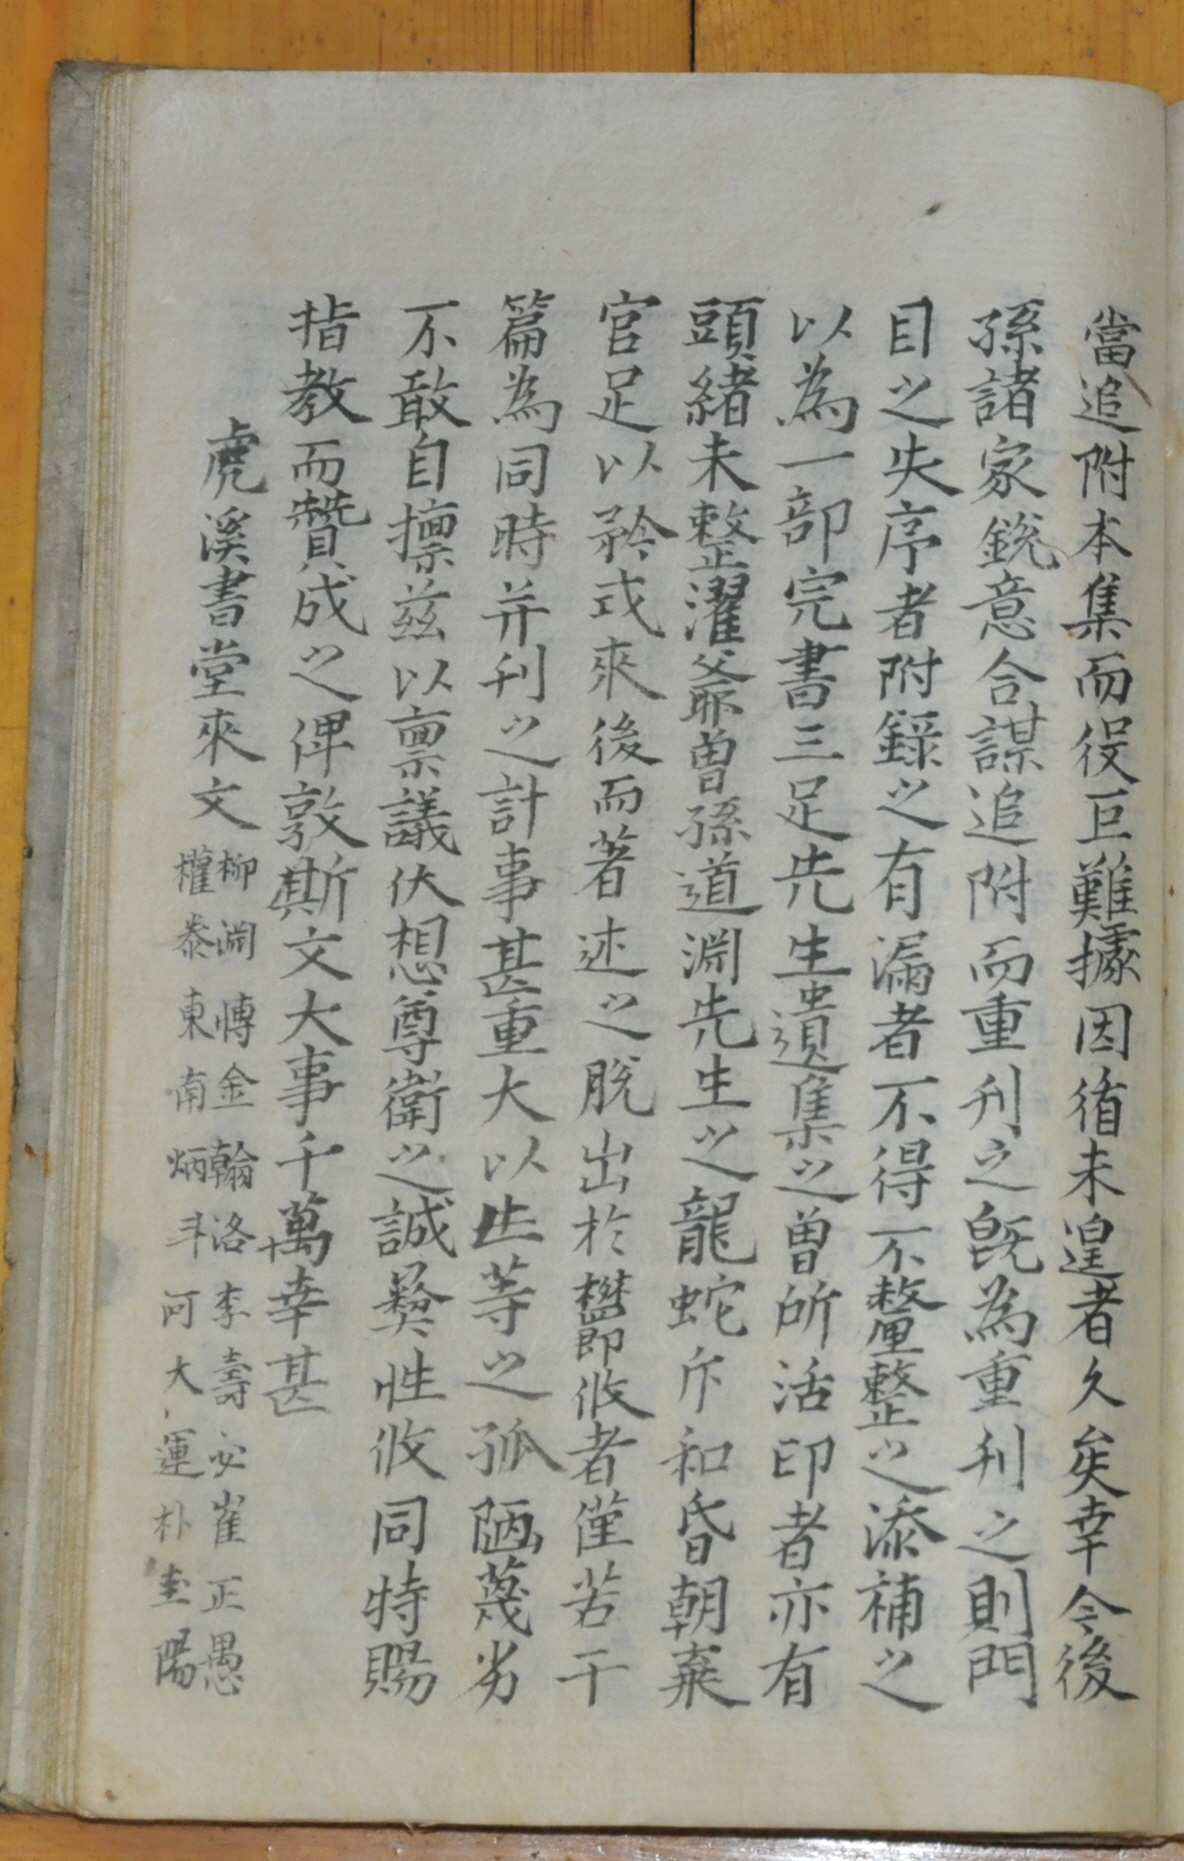 當追附本集而役巨難據因循未遑者久矣幸今後
孫諸家銳意合謀追附而重刊之旣為重刊之則門
目之失序者附錄之有漏者不得不釐整之添補之
以為一部完書三足先生遺集之曾所活印者亦有
頭緒未整濯爺曾孫道淵先生之龍蛇斥和昏朝棄
官足以矜式來後而著述之脫出於爇卽收者僅若干
篇為同時并刊之計事甚重大以生等之孤陋蔑劣
不敢自擅茲以稟議伏想尊衛之誠彜性攸同特賜
指教而贊成之俾敦斯文大事千萬幸甚
虎溪書堂來文
柳淵博金翰洛李壽宓崔正愚
權泰東南炳斗河大運朴圭陽